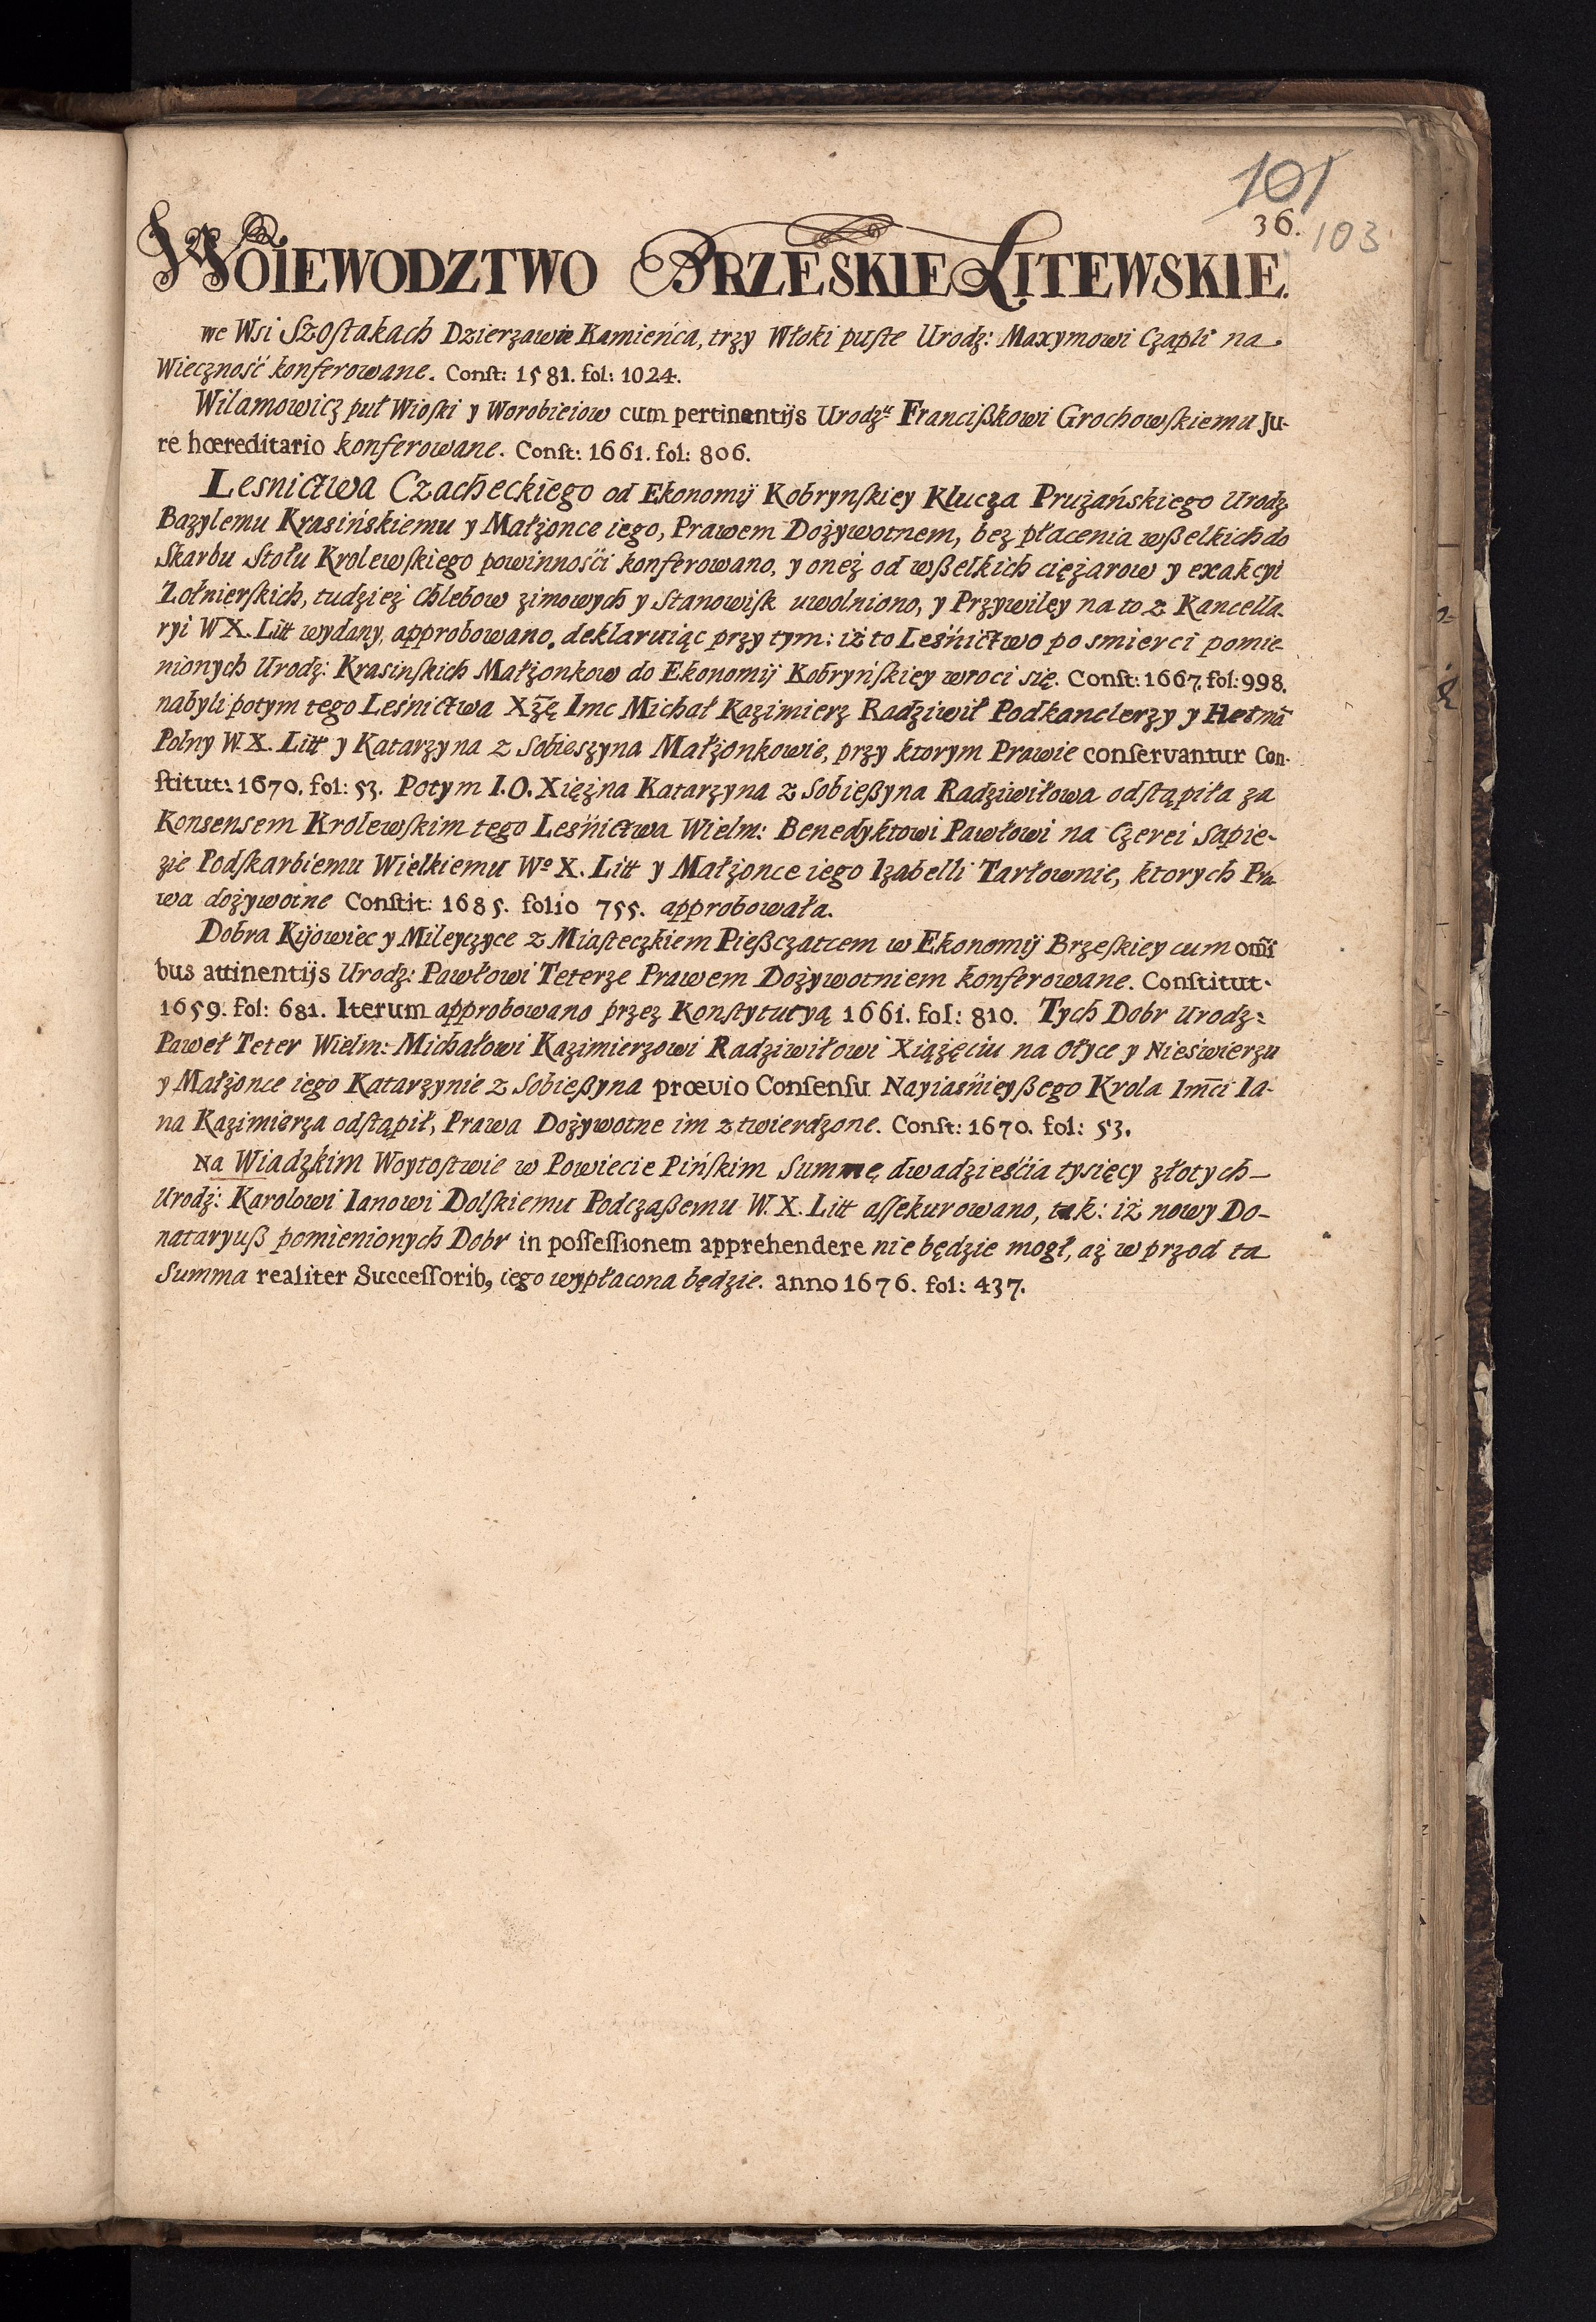 101
36. 103
WOIEWODZTWO BRZESKIE LITEWSKIE.
we Wsi Szostakach Dzierzawie Kamieńca, trzy Włoki puste Urodz: Maxymowi Czapli na
Wieczność konferowane. Const: 1581. fol: 1024.
Wilamowicz puł Wioski y Worobieiow cum pertinentijs Urodzu Franciszkowi Grochowskiemu Ju-
re hœreditario konferowane. Const: 1661. fol: 806.
Lesnictwa Czacheckiego od Ekonomij Kobrynskiey Klucza Prużańskiego Urodz
Bazylemu Krasińskiemu y Małżonce iego, Prawem Dożywotnem, bez płacenia wßelkich do
Skarbu Stołu Krolewskiego powinnośći konferowano, y oneż od wßelkich ciężarow y exakcyi
Zołnierskich, tudzież Chlebow zimowych y Stanowisk uwolniono, y Przywiley na to z Kancella-
ryi W X. Litt wydany, approbowano, deklaruiąc przy tym: iż to Leśnictwo po smierci pomie-
nionych Urodz: Krasinskich Małżonkow do Ekonomij Kobryńskiey wroci się. Const: 1667. fol: 998.
nabyli potym tego Leśnictwa Xżę Imc Michał Kazimierz Radziwił Podkanclerzy y Hetmā
Polny W. X. Litt y Katarzyna z Sobieszyna Małżonkowie, przy ktorym Prawie conservantur Con-
stitut: 1670. fol: 53. Potym I. O. Xiężna Katarzyna z Sobießyna Radziwiłowa odstąpiła za
Konsensem Krolewskim tego Leśnictwa Wielm: Benedyktowi Pawłowi na Czerei Sapie-
zie Podskarbiemu Wielkiemu Wo X. Litt y Małżonce iego Izabelli Tarłownie, ktorych Pra-
wa dożywotne Constit: 1685. folio 755. approbowała.
Dobra Kijowiec y Mileyczyce z Miasteczkiem Pießczatcem w Ekonomij Brzeskiey cum om̄i
bus attinentijs Urodz: Pawłowi Teterze Prawem Dożywotniem konferowane. Constitut.
1659. fol: 681. Iterum approbowano przez Konstytucyą 1661. fol: 810. Tych Dobr Urodz:
Paweł Teter Wielm: Michałowi Kazimierzowi Radziwiłowi Xiążęciu na Ołyce y Nieświerzu
y Małżonce iego Katarzynie z Sobießyna prœvio Consensu Nayiaśnieyßego Krola Im̄ci Ia-
na Kazimierza odstąpił, Prawa Dożywotne im ztwierdzone. Const: 1670. fol: 53.
Na Wiadzkim Woytostwie w Powiecie Pińskim Summę dwadzieścia tysięcy złotych
Urodz: Karolowi Ianowi Dolskiemu Podczaßemu W. X. Litt assekurowano, tak: iż nowy Do-
nataryuß pomienionych Dobr in possessionem apprehendere nie będzie mogł, aż w przod ta
Summa realiter Successorib, iego wypłacona będzie. anno 1676. fol: 437.